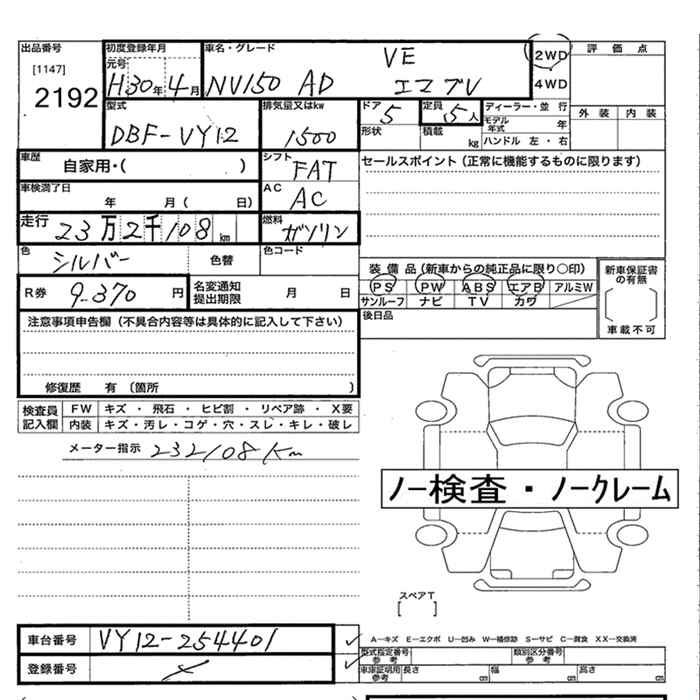 出品番号 初度登録年月 車名・グレード VE 2WD 評価点
[1147] 元号 4WD
2192 H30年4月 NV150 AD エマブV
型式 排気量又はkw ドア 5 定員 5人 ディーラー・並行 外装 内装
DBF-VY12 1500 形状 積載 kg モデル年式 年
ハンドル 左・右
車歴 自家用・( ) シフト FAT セールスポイント(正常に機能するものに限ります)
車検満了日 年 月( 日) AC AC
走行 23万2千108km 燃料 ガソリン
色 シルバー 色替 色コード
装備品(新車からの純正品に限り○印) 新車保証書の有無
R券 9-370円 名変通知提出期限 月 日 PS PW ABS エアB アルミW
サンルーフ ナビ TV カワ
後日品 車載不可
注意事項申告欄(不具合内容等は具体的に記入して下さい)
修復歴 有(箇所 )
検査員記入欄 FW キズ・飛石・ヒビ割・リペア跡・X要
内装 キズ・汚レ・コゲ・穴・スレ・キレ・破レ
メーター指示 232108Km
ノー検査・ノークレーム
スペアT
[ ]
車台番号 VY12-254401
A—キズ E—エクボ U—凹み W—補修跡 S—サビ C—腐食 XX—交換済
型式指定番号 参考 類別区分番号 参考
登録番号
車庫証明用 参考 長さ cm 幅 cm 高さ cm